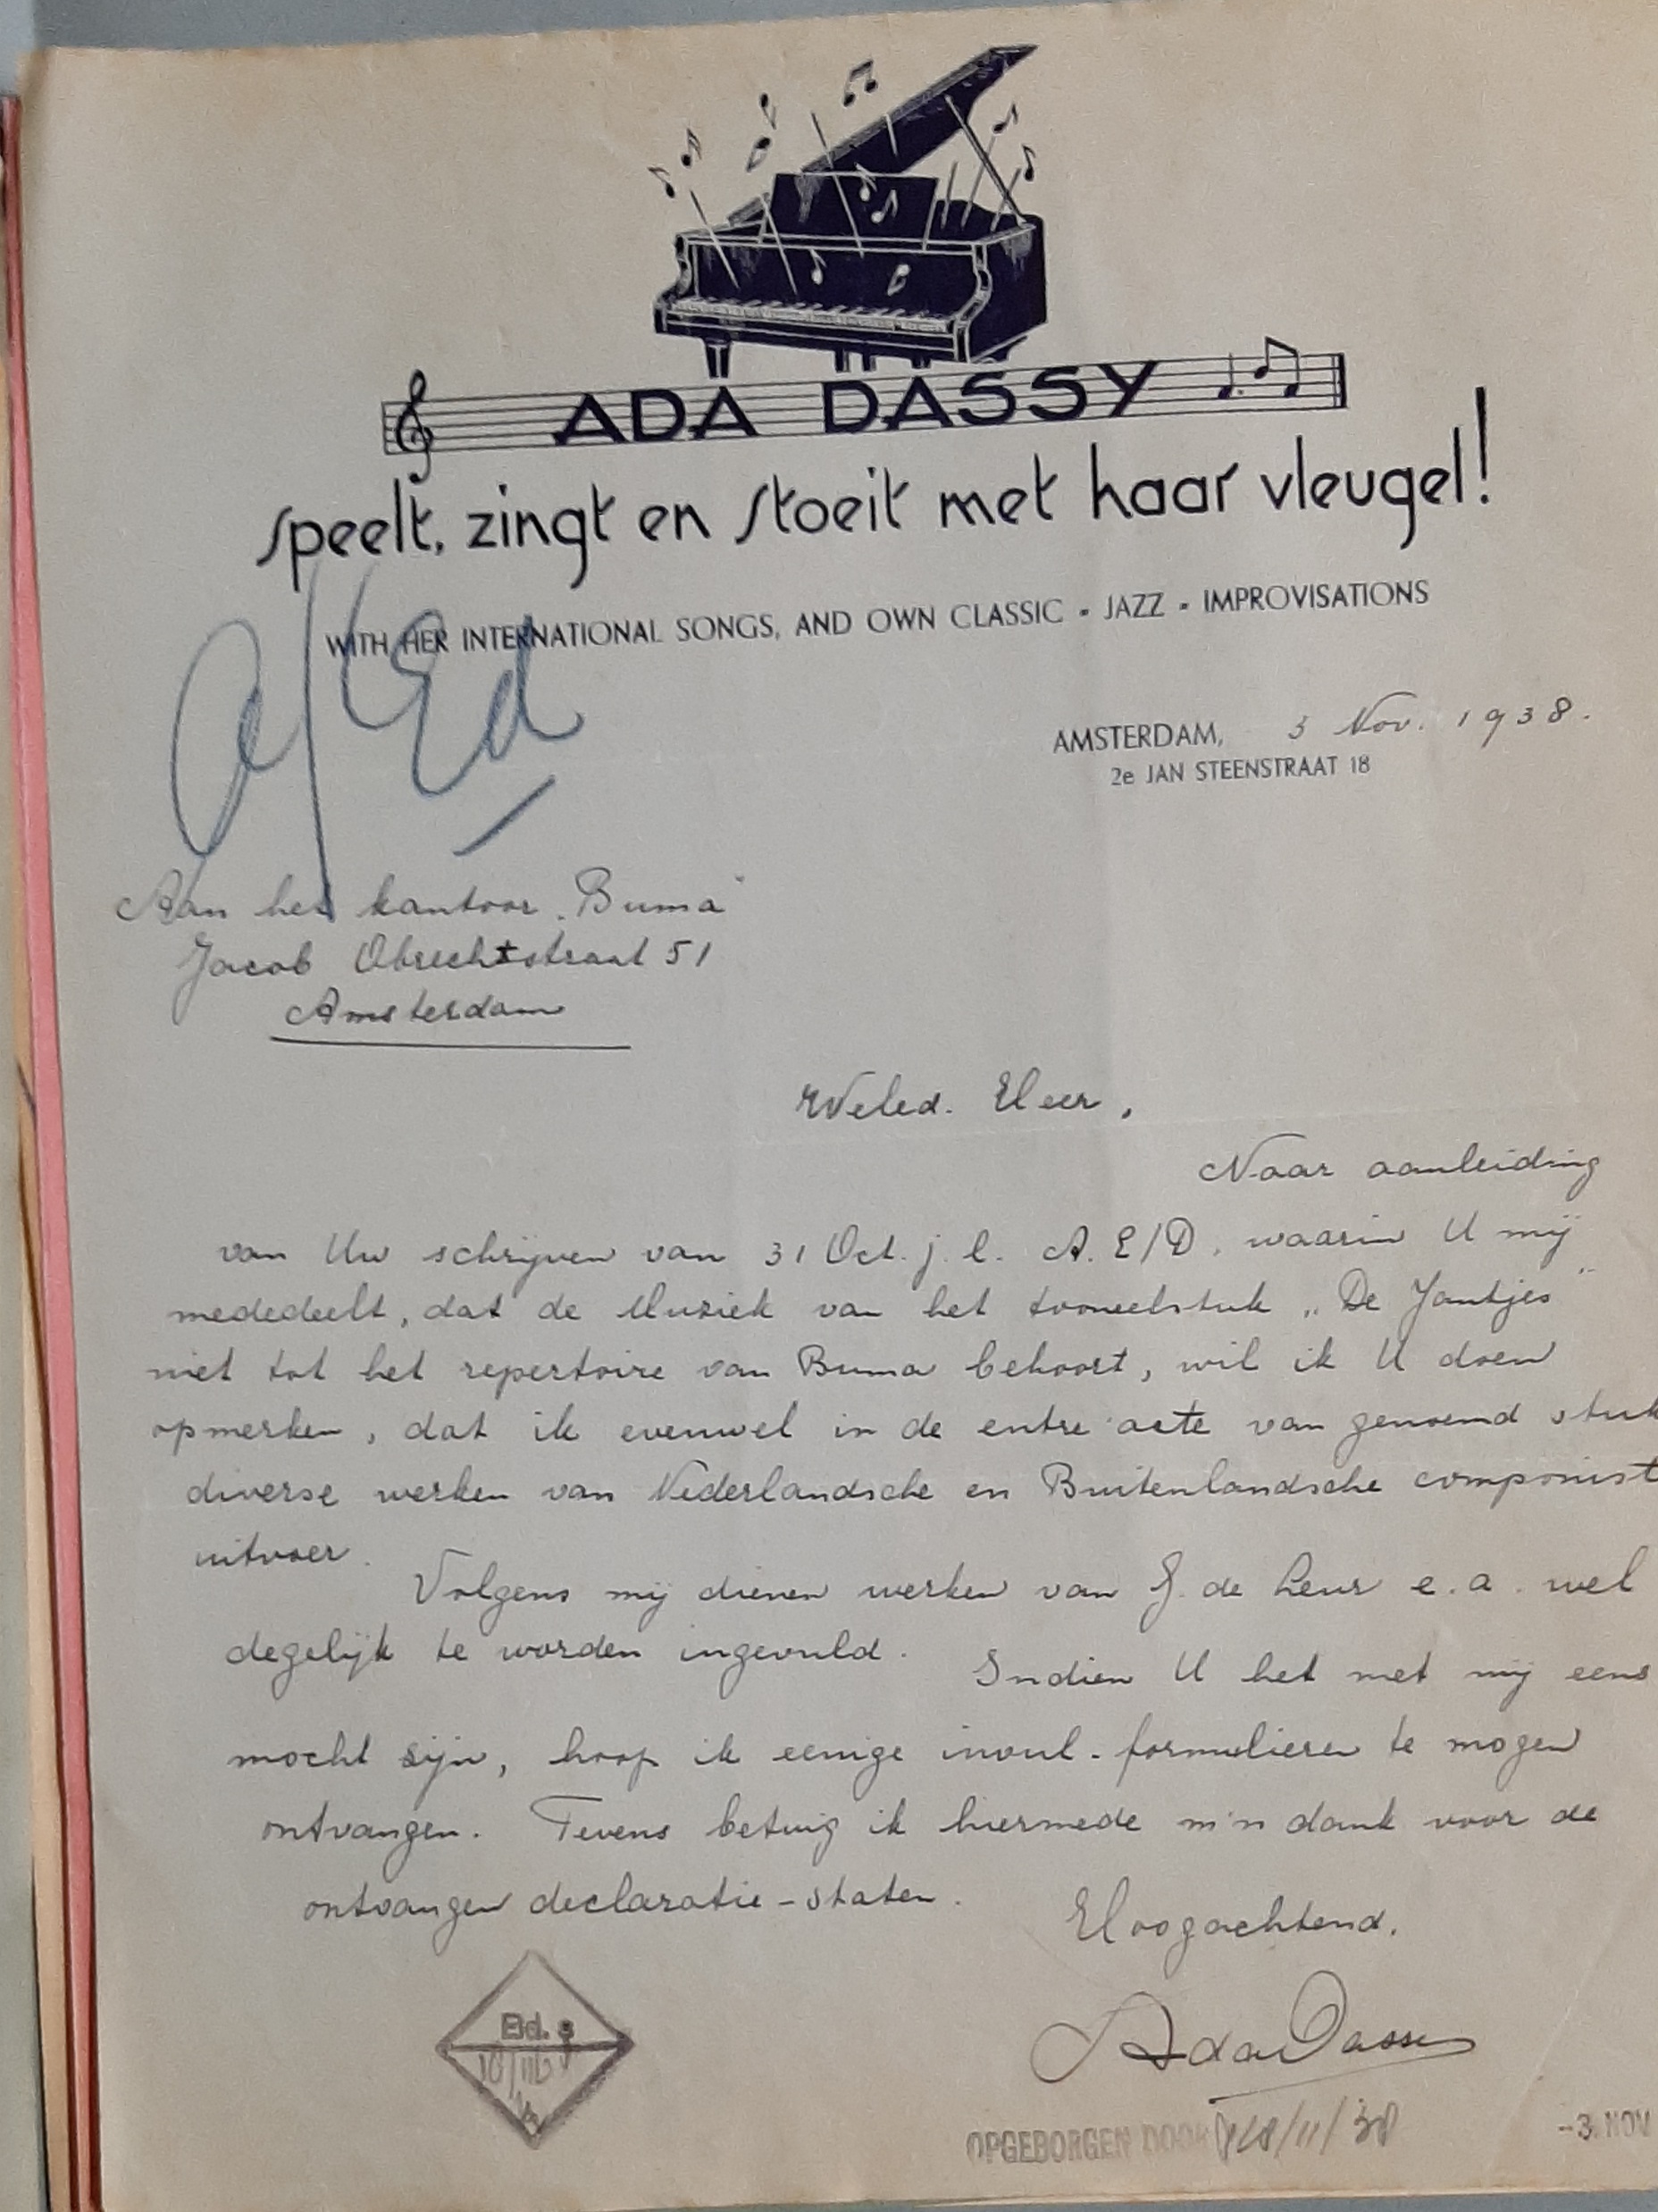 ADA DASSY
speelt, zingt en stoeit met haar vleugel!
WITH HER INTERNATIONAL SONGS, AND OWN CLASSIC - JAZZ - IMPROVISATIONS
AMSTERDAM, 3 Nov. 1938.
2e JAN STEENSTRAAT 18
Aan het kantoor "Buma"
Jacob Obrechtstraat 51
Amsterdam
Weled. Heer,
Naar aanleiding
van Uw schrijven van 31 Oct. j.l. A.E/D. waarin U mij
mededeelt, dat de Muziek van het tooneelstuk „De Jantjes"
niet tot het repertoire van Buma behoort, wil ik U doen
opmerken, dat ik evenwel in de entre acte van genoemd stuk
diverse werken van Nederlandsche en Buitenlandsche componist
uitvoer.
Volgens mij dienen werken van J. de Leur e.a. wel
degelijk te worden ingevuld.
Indien U het met mij eens
mocht zijn, hoop ik eenige invul-formulieren te mogen
ontvangen. Tevens betuig ik hiermede m'n dank voor de
ontvangen declaratie-staten.
Hoogachtend.
Ada Dassy
Bd.
OPGEBORGEN DOOR
-3 NOV